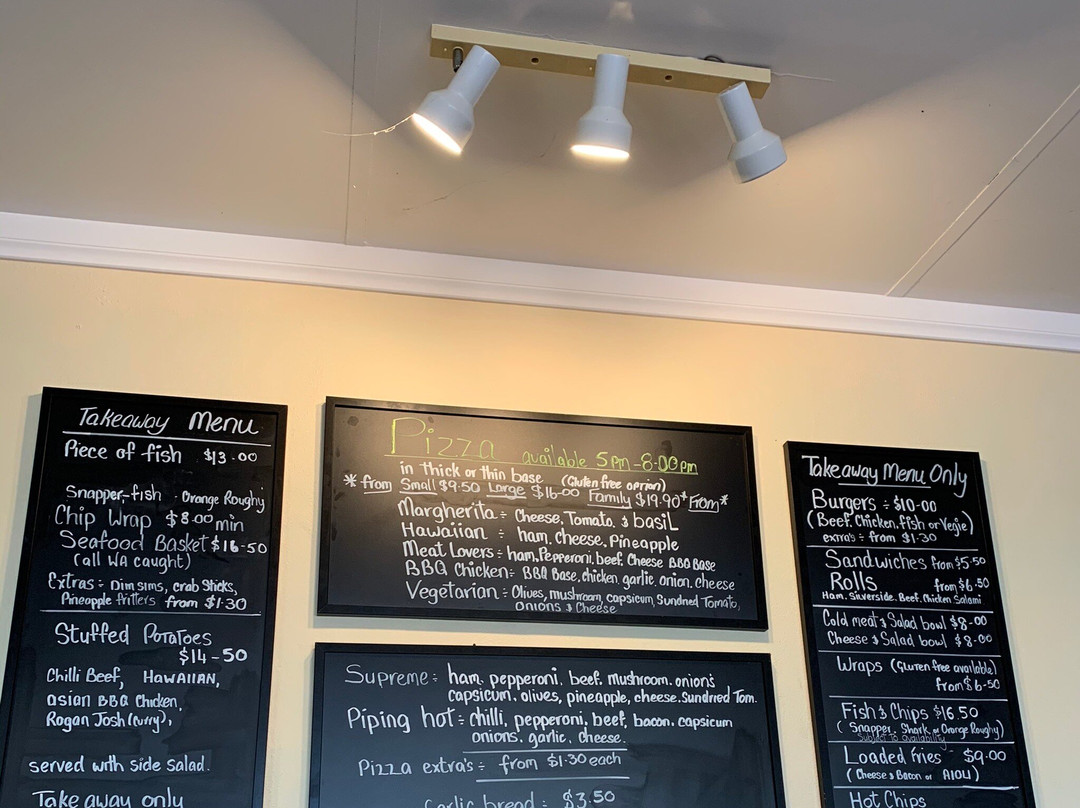 Takeaway Menu
Piece of fish $13.00
Snapper-fish . Orange Roughy
Chip Wrap $8.00 min
Seafood Basket $16-50
(all WA caught)
Extras ÷ Dim sims, crab sticks,
Pineapple fritters from $1.30
Stuffed Potatoes
$14-50
Chilli Beef, HAWAIIAN,
asian BBQ Chicken,
Rogan Josh (curry),
served with side salad.
Take away only
Pizza available 5pm-8.00pm
in thick or thin base (Gluten free option)
*from Small $9.50 Large $16-00 Family $19.90* From*
Margherita ÷ Cheese, Tomato, & basil
Hawaiian ÷ ham, cheese, Pineapple
Meat Lovers ÷ ham, Pepperoni, beef, Cheese BBQ Base
BBQ Chicken ÷ BBQ Base, chicken, garlic, onion, cheese
Vegetarian ÷ Olives, mushroom, capsicum, Sundried Tomato,
onions & Cheese
Supreme ÷ ham, pepperoni, beef, mushroom, onions
capsicum, olives, pineapple, cheese, Sundried Tom.
Piping hot ÷ chilli, pepperoni, beef, bacon, capsicum
onions, garlic, cheese.
Pizza extra's ÷ from $1.30 each
Garlic bread ÷ $3.50
Takeaway Menu Only
Burgers ÷ $10-00
(Beef, Chicken, fish or Vegie)
extra's ÷ from $1.30
Sandwiches from $5.50
Rolls from $6.50
Ham, Silverside, Beef, Chicken Salami
Cold meat & Salad bowl $8-00
Cheese & Salad bowl $8.00
Wraps (Gluten free available)
from $6-50
Fish & Chips $16.50
(Snapper, Shark, or Orange Roughy)
Subject to availability
Loaded fries $9.00
(Cheese & Bacon or AIOLI)
Hot Chips